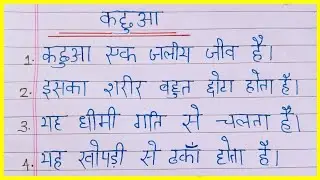 कछुआ
1. कछुआ एक जलीय जीव है।
2. इसका शरीर बहुत छोटा होता है।
3. यह धीमी गति से चलता है।
4. यह खोपड़ी से ढकाँ होता है।